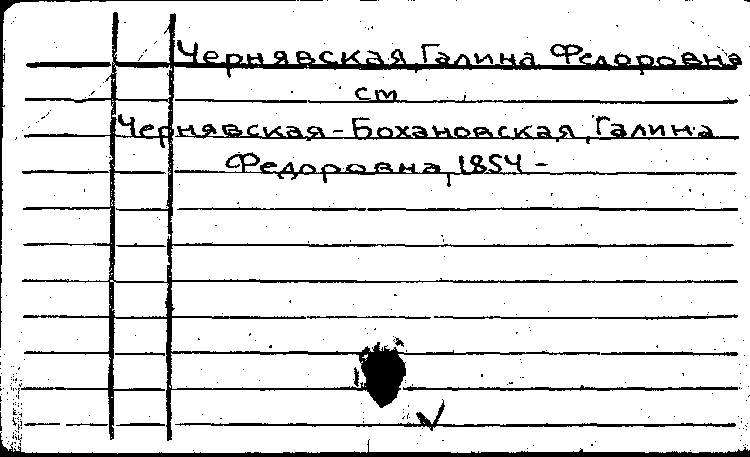 Чернявская, Галина Федоровна
см
Чернявская-Бохановская, Галина
Федоровна, 1854 -